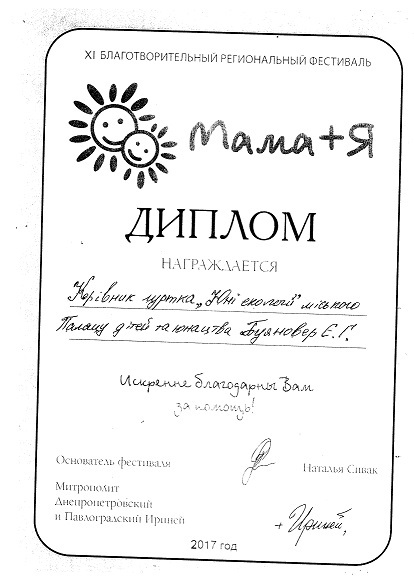 XI БЛАГОТВОРИТЕЛЬНЫЙ РЕГИОНАЛЬНЫЙ ФЕСТИВАЛЬ
Мама+Я
ДИПЛОМ
НАГРАЖДАЕТСЯ
Керівник гуртка „Юні екологи" міського
Палацу дітей та юнацтва Буяновер Е.Г.
Искренне благодарны Вам
за помощь!
Основатель фестиваля
Наталья Сивак
Митрополит
Днепропетровский
и Павлоградский Ириней
+ Ириней,
2017 год